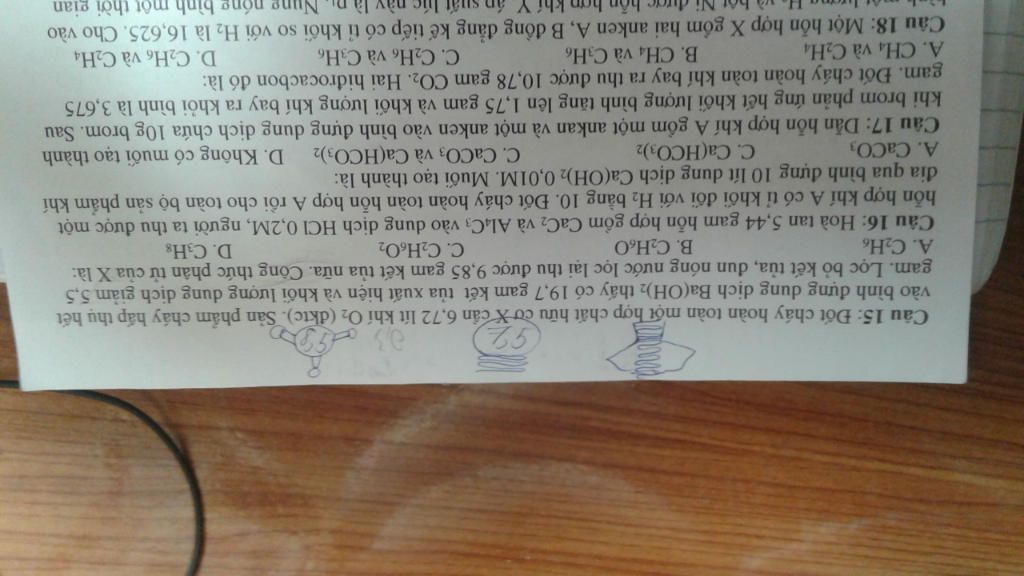 Câu 15: Đốt cháy hoàn toàn một hợp chất hữu cơ X cần 6,72 lít khí O₂ (đktc). Sản phẩm cháy hấp thụ hết
vào bình đựng dung dịch Ba(OH)₂ thấy có 19,7 gam kết tủa xuất hiện và khối lượng dung dịch giảm 5,5
gam. Lọc bỏ kết tủa, đun nóng nước lọc lại thu được 9,85 gam kết tủa nữa. Công thức phân tử của X là:
A. C₂H₆ B. C₂H₆O C. C₂H₆O₂ D. C₃H₈
Câu 16: Hoà tan 5,44 gam hỗn hợp gồm CaC₂ và Al₄C₃ vào dung dịch HCl 0,2M, người ta thu được một
hỗn hợp khí A có tỉ khối đối với H₂ bằng 10. Đốt cháy hoàn toàn hỗn hợp A rồi cho toàn bộ sản phẩm khí
đia qua bình đựng 10 lít dung dịch Ca(OH)₂ 0,01M. Muối tạo thành là:
A. CaCO₃ C. Ca(HCO₃)₂ C. CaCO₃ và Ca(HCO₃)₂ D. Không có muối tạo thành
Câu 17: Dẫn hỗn hợp khí A gồm một ankan và một anken vào bình đựng dung dịch chứa 10g brom. Sau
khi brom phản ứng hết khối lượng bình tăng lên 1,75 gam và khối lượng khí bay ra khỏi bình là 3,675
gam. Đốt cháy hoàn toàn khí bay ra thu được 10,78 gam CO₂. Hai hiđrocacbon đó là:
A. CH₄ và C₂H₄ B. CH₄ và C₃H₆ C. C₂H₆ và C₃H₆ D. C₂H₆ và C₂H₄
Câu 18: Một hỗn hợp X gồm hai anken A, B đồng đẳng kế tiếp có tỉ khối so với H₂ là 16,625. Cho vào
bình một lượng H₂ và bột Ni được hỗn hợp khí Y, áp suất lúc này là p₁. Nung nóng bình một thời gian